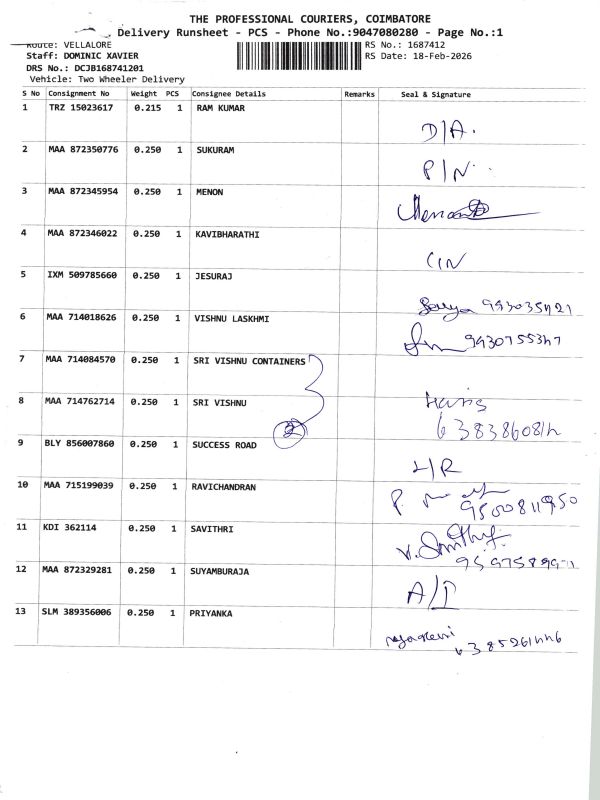 THE PROFESSIONAL COURIERS, COIMBATORE
Delivery Runsheet - PCS - Phone No.:9047080280 - Page No.:1
Route: VELLALORE
RS No.: 1687412
Staff: DOMINIC XAVIER
RS Date: 18-Feb-2026
DRS No.: DCJB168741201
Vehicle: Two Wheeler Delivery
S No Consignment No Weight PCS Consignee Details Remarks Seal & Signature
1 TRZ 15023617 0.215 1 RAM KUMAR
D/A.
2 MAA 872350776 0.250 1 SUKURAM
P/N.
3 MAA 872345954 0.250 1 MENON
Menon
4 MAA 872346022 0.250 1 KAVIBHARATHI
C/N
5 IXM 509785660 0.250 1 JESURAJ
6 MAA 714018626 0.250 1 VISHNU LASKHMI
7 MAA 714084570 0.250 1 SRI VISHNU CONTAINERS
8 MAA 714762714 0.250 1 SRI VISHNU
2
9 BLY 856007860 0.250 1 SUCCESS ROAD
L/R
10 MAA 715199039 0.250 1 RAVICHANDRAN
9500811950
11 KDI 362114 0.250 1 SAVITHRI
12 MAA 872329281 0.250 1 SUYAMBURAJA
13 SLM 389356006 0.250 1 PRIYANKA